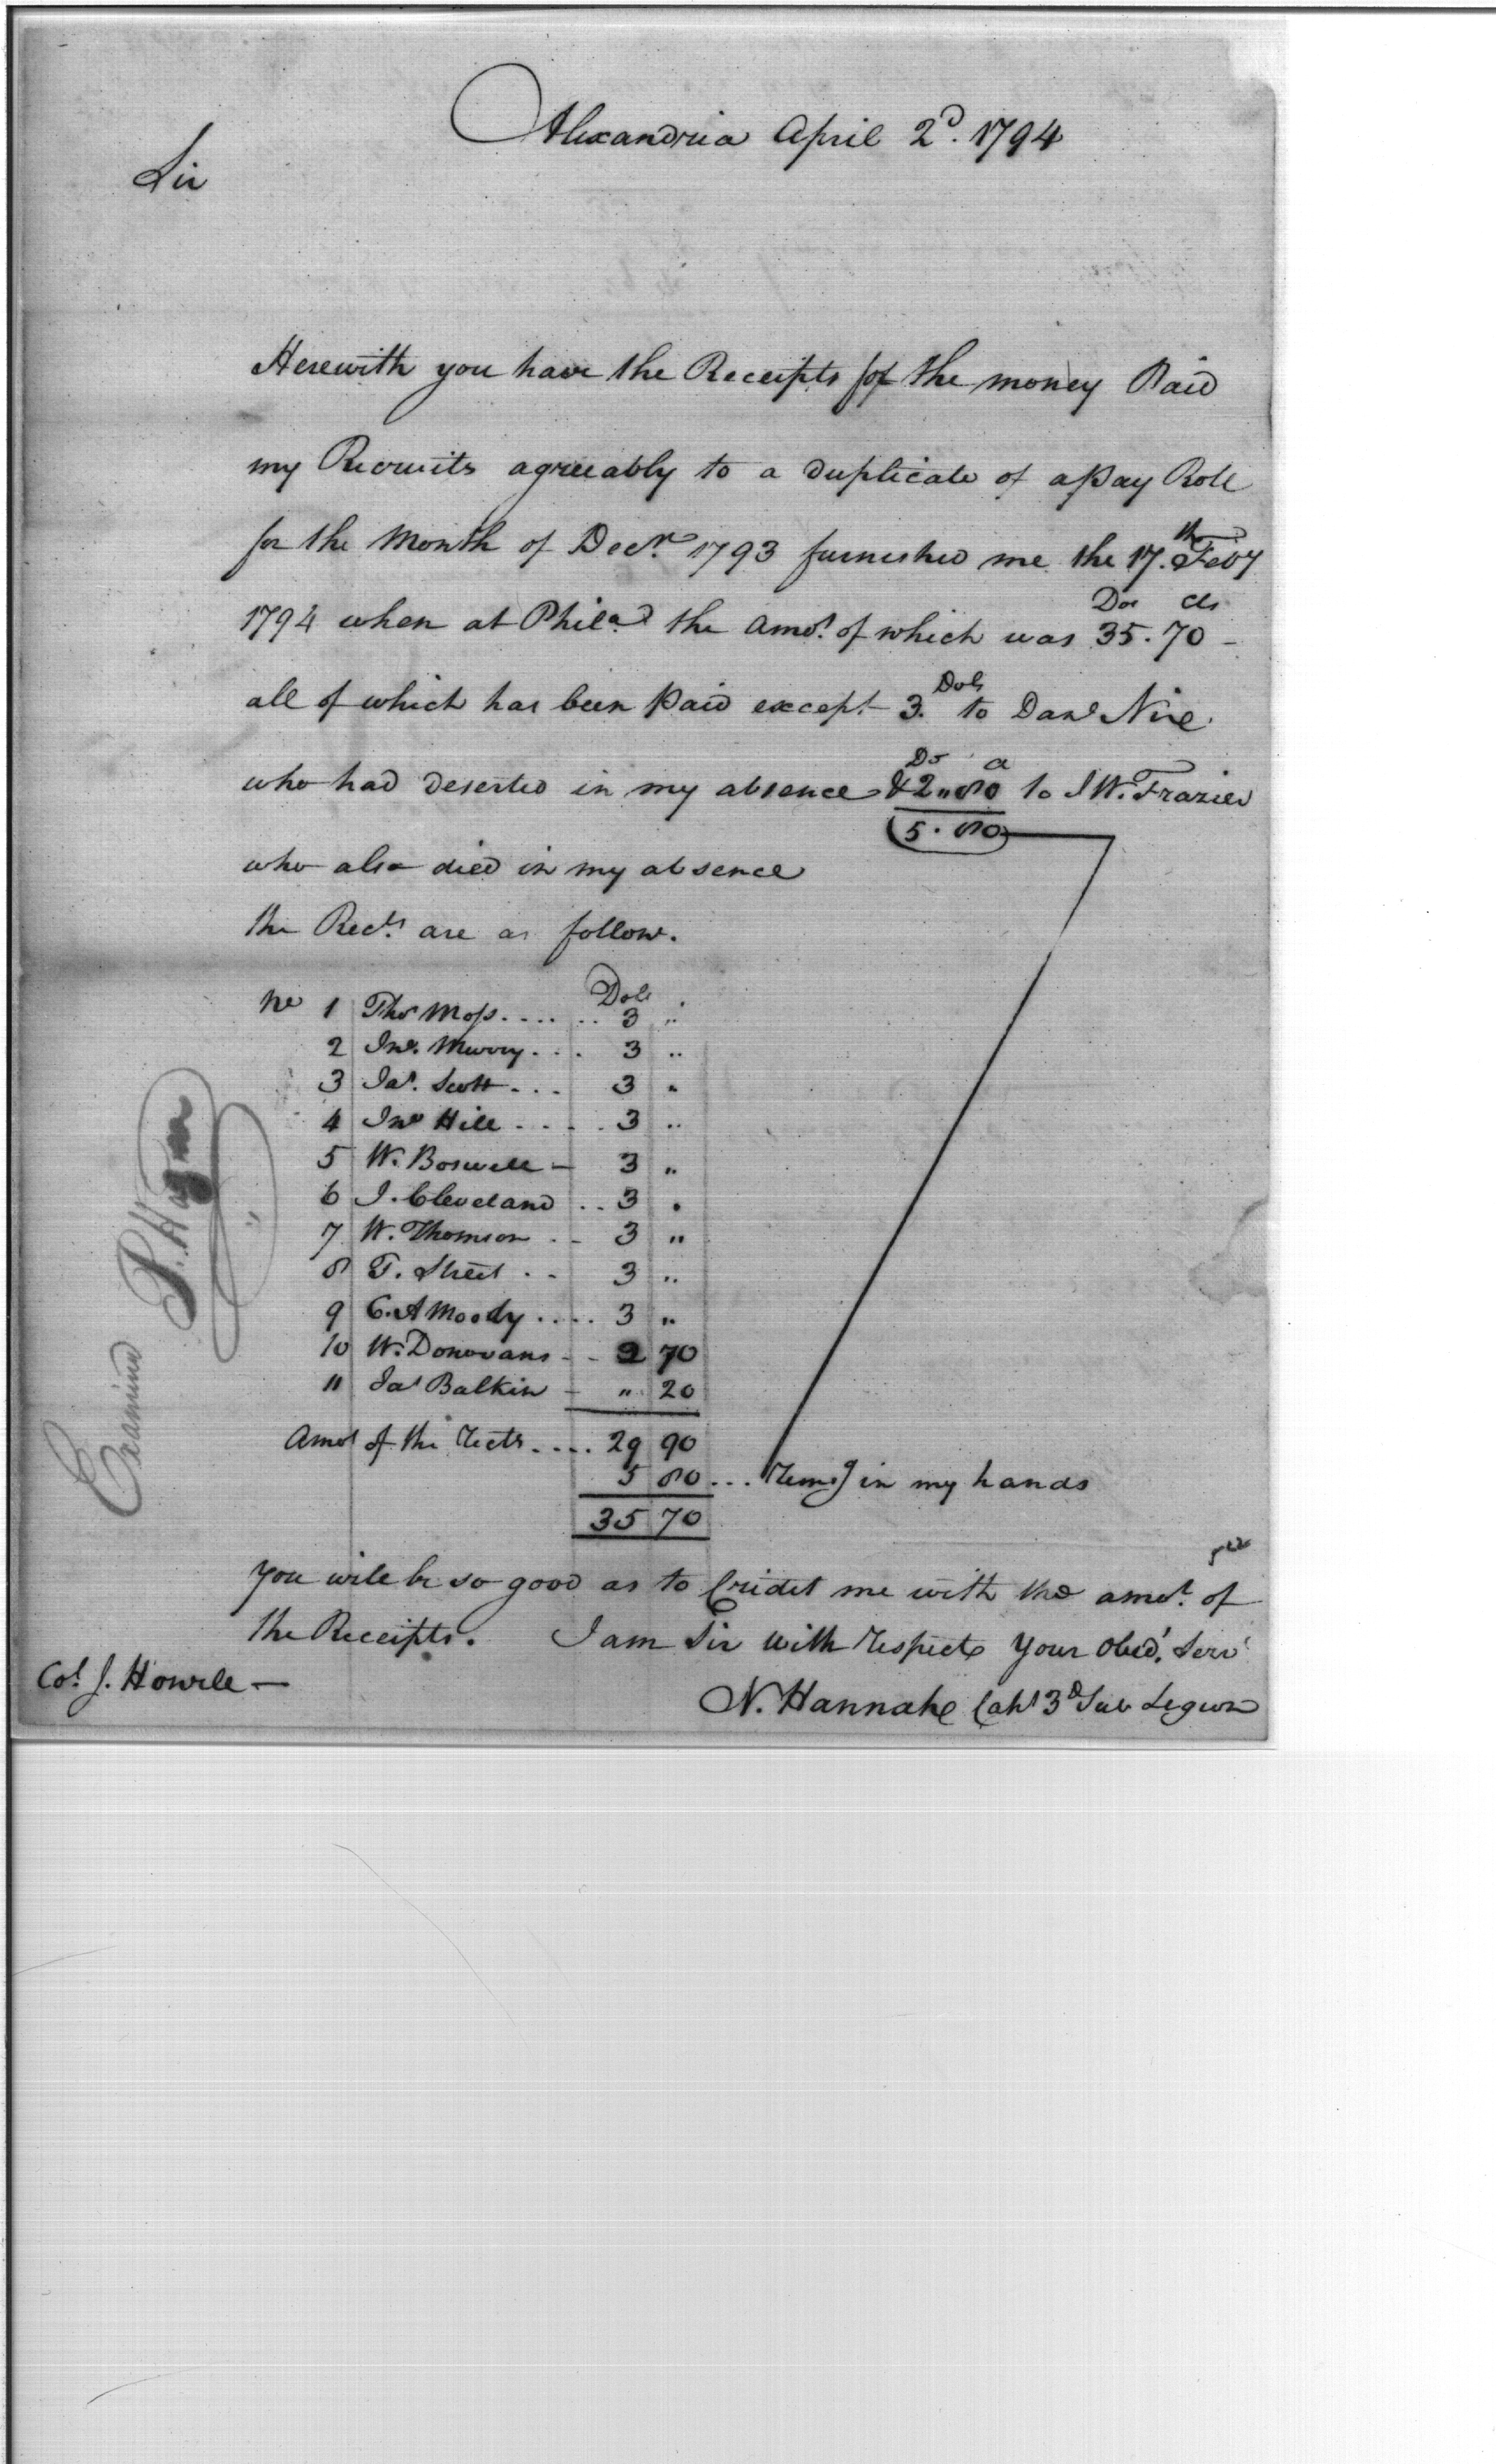 Alexandria April 2d. 1794
Sir
Herewith you have the Receipts for the money Paid
my Recruits agreeably to a Duplicate of a Pay Roll
for the Month of Decr. 1793 furnished me the 17.th Feby
1794 when at Philad. the amot. of which was 35.70 -
Dos Cts
all of which has been Paid except 3. Dols to Danl
who had Deserted in my absence & 2,,80 to J W. Frazier
Do Ct
5.80
who also died in my absence
the Rects. are as follow.
Dols
No 1 Thos Moss . . . . . . 3 ,,
2 Jno. Murry . . . 3 ,,
3 Jas. Scott . . . 3 ,,
4 Jno Hill . . . . . 3 ,,
5 W. Boswell — 3 ,,
6 J. Cleveland . . 3 ,,
7 W. Thomson . . 3 ,,
8 T. Street . . 3 ,,
9 C. A Moody . . . . . 3 ,,
10 W. Donovans - - 2 70
11 Jas Balkin - ,, 20
Amot of the rects . . . . 29 90
5 80 . . . remg in my hands
35 70
you will be so good as to Cridet me with the amot. of
the Receipts. I am Sir with respects your obed. Servt
Col. J. Howell —
N. Hannah Capt 3d Sub Legion
Examined